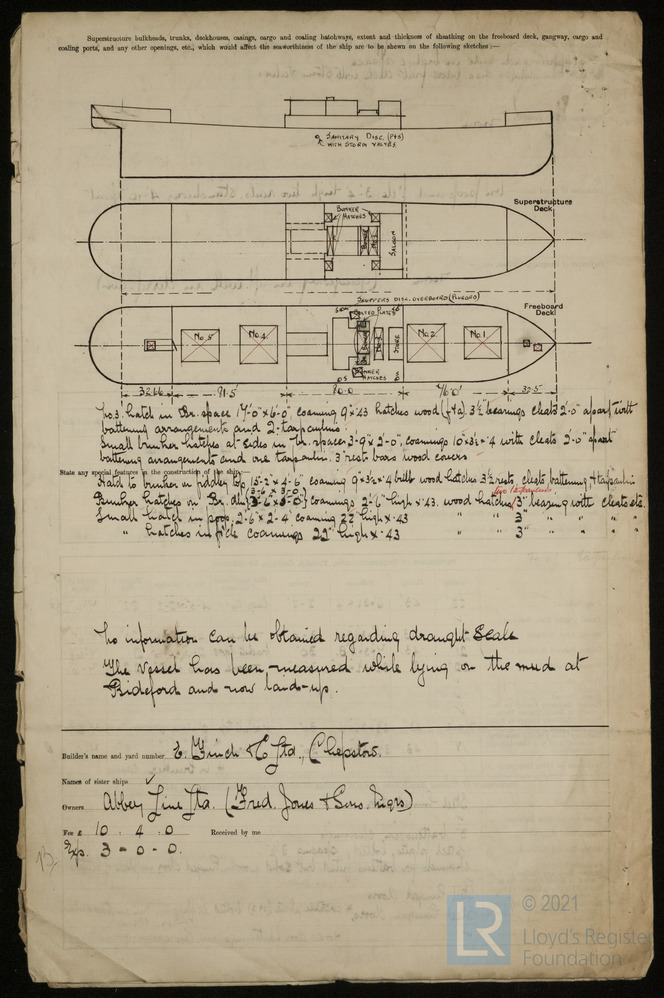 Superstructure bulkheads, trunks, deckhouses, casings, cargo and coaling hatchways, extent and thickness of sheathing on the freeboard deck, gangway, cargo and
coaling ports, and any other openings, etc., which would affect the seaworthiness of the ship are to be shewn on the following sketches:—
SANITARY DISC. (P&S)
WITH STORM VALVES
Superstructure
Deck
BUNKER
HATCHES
BUNKER
SALOON
SCUPPERS DISC. OVERBOARD (FLUSHED)
Freeboard
Deck
BOLTED PLATES
No.5
No.4
STORE
No.2
No.1
BUNKER
HATCHES
32.66
91.5
80.0
76.0
32.5
No.3. hatch in Br. space 17'-0" x 6'-0", coaming 9" x .43 hatches wood (f & a). 3½" bearings cleats 2'-0" apart with
battening arrangements and 2-tarpaulins.
Small bunker hatches at sides in Br. space 3'-9" x 2'-0", coamings 10" x 3½" x .4 with cleats 2'-0" apart
battening arrangements and one tarpaulin. 3" rest bars wood covers
State any special features in the construction of the ship:—
Hatch to bunker in fiddley top, 15'-2" x 4'-6" coaming 9" x 3½" x .4 bulb wood hatches 3½ rests, cleats, battening & tarpaulin
two tarpaulins
Bunker hatches on Br. dk coamings 2'-6" high x .43. wood hatches 3" bearing with cleats etc.
Small hatch in poop, 2'-6" x 2'-4" coaming 22" high x .43 " " 3" " " " "
" hatches in f'cle coamings 22" high x .43 " " 3" " " " "
No information can be obtained regarding draught scale
The vessel has been measured while lying on the mud at
Bideford and now laid-up.
Builder's name and yard number E. Finch & C Ltd., Chepstow.
Names of sister ships
Owners Abbey Line Ltd. (Fred. Jones & Sons. Mgrs)
Fee £ 10 : 4 : 0 Received by me
Exps. 3 - 0 - 0.
LR
© 2021
Lloyd's Register
Foundation